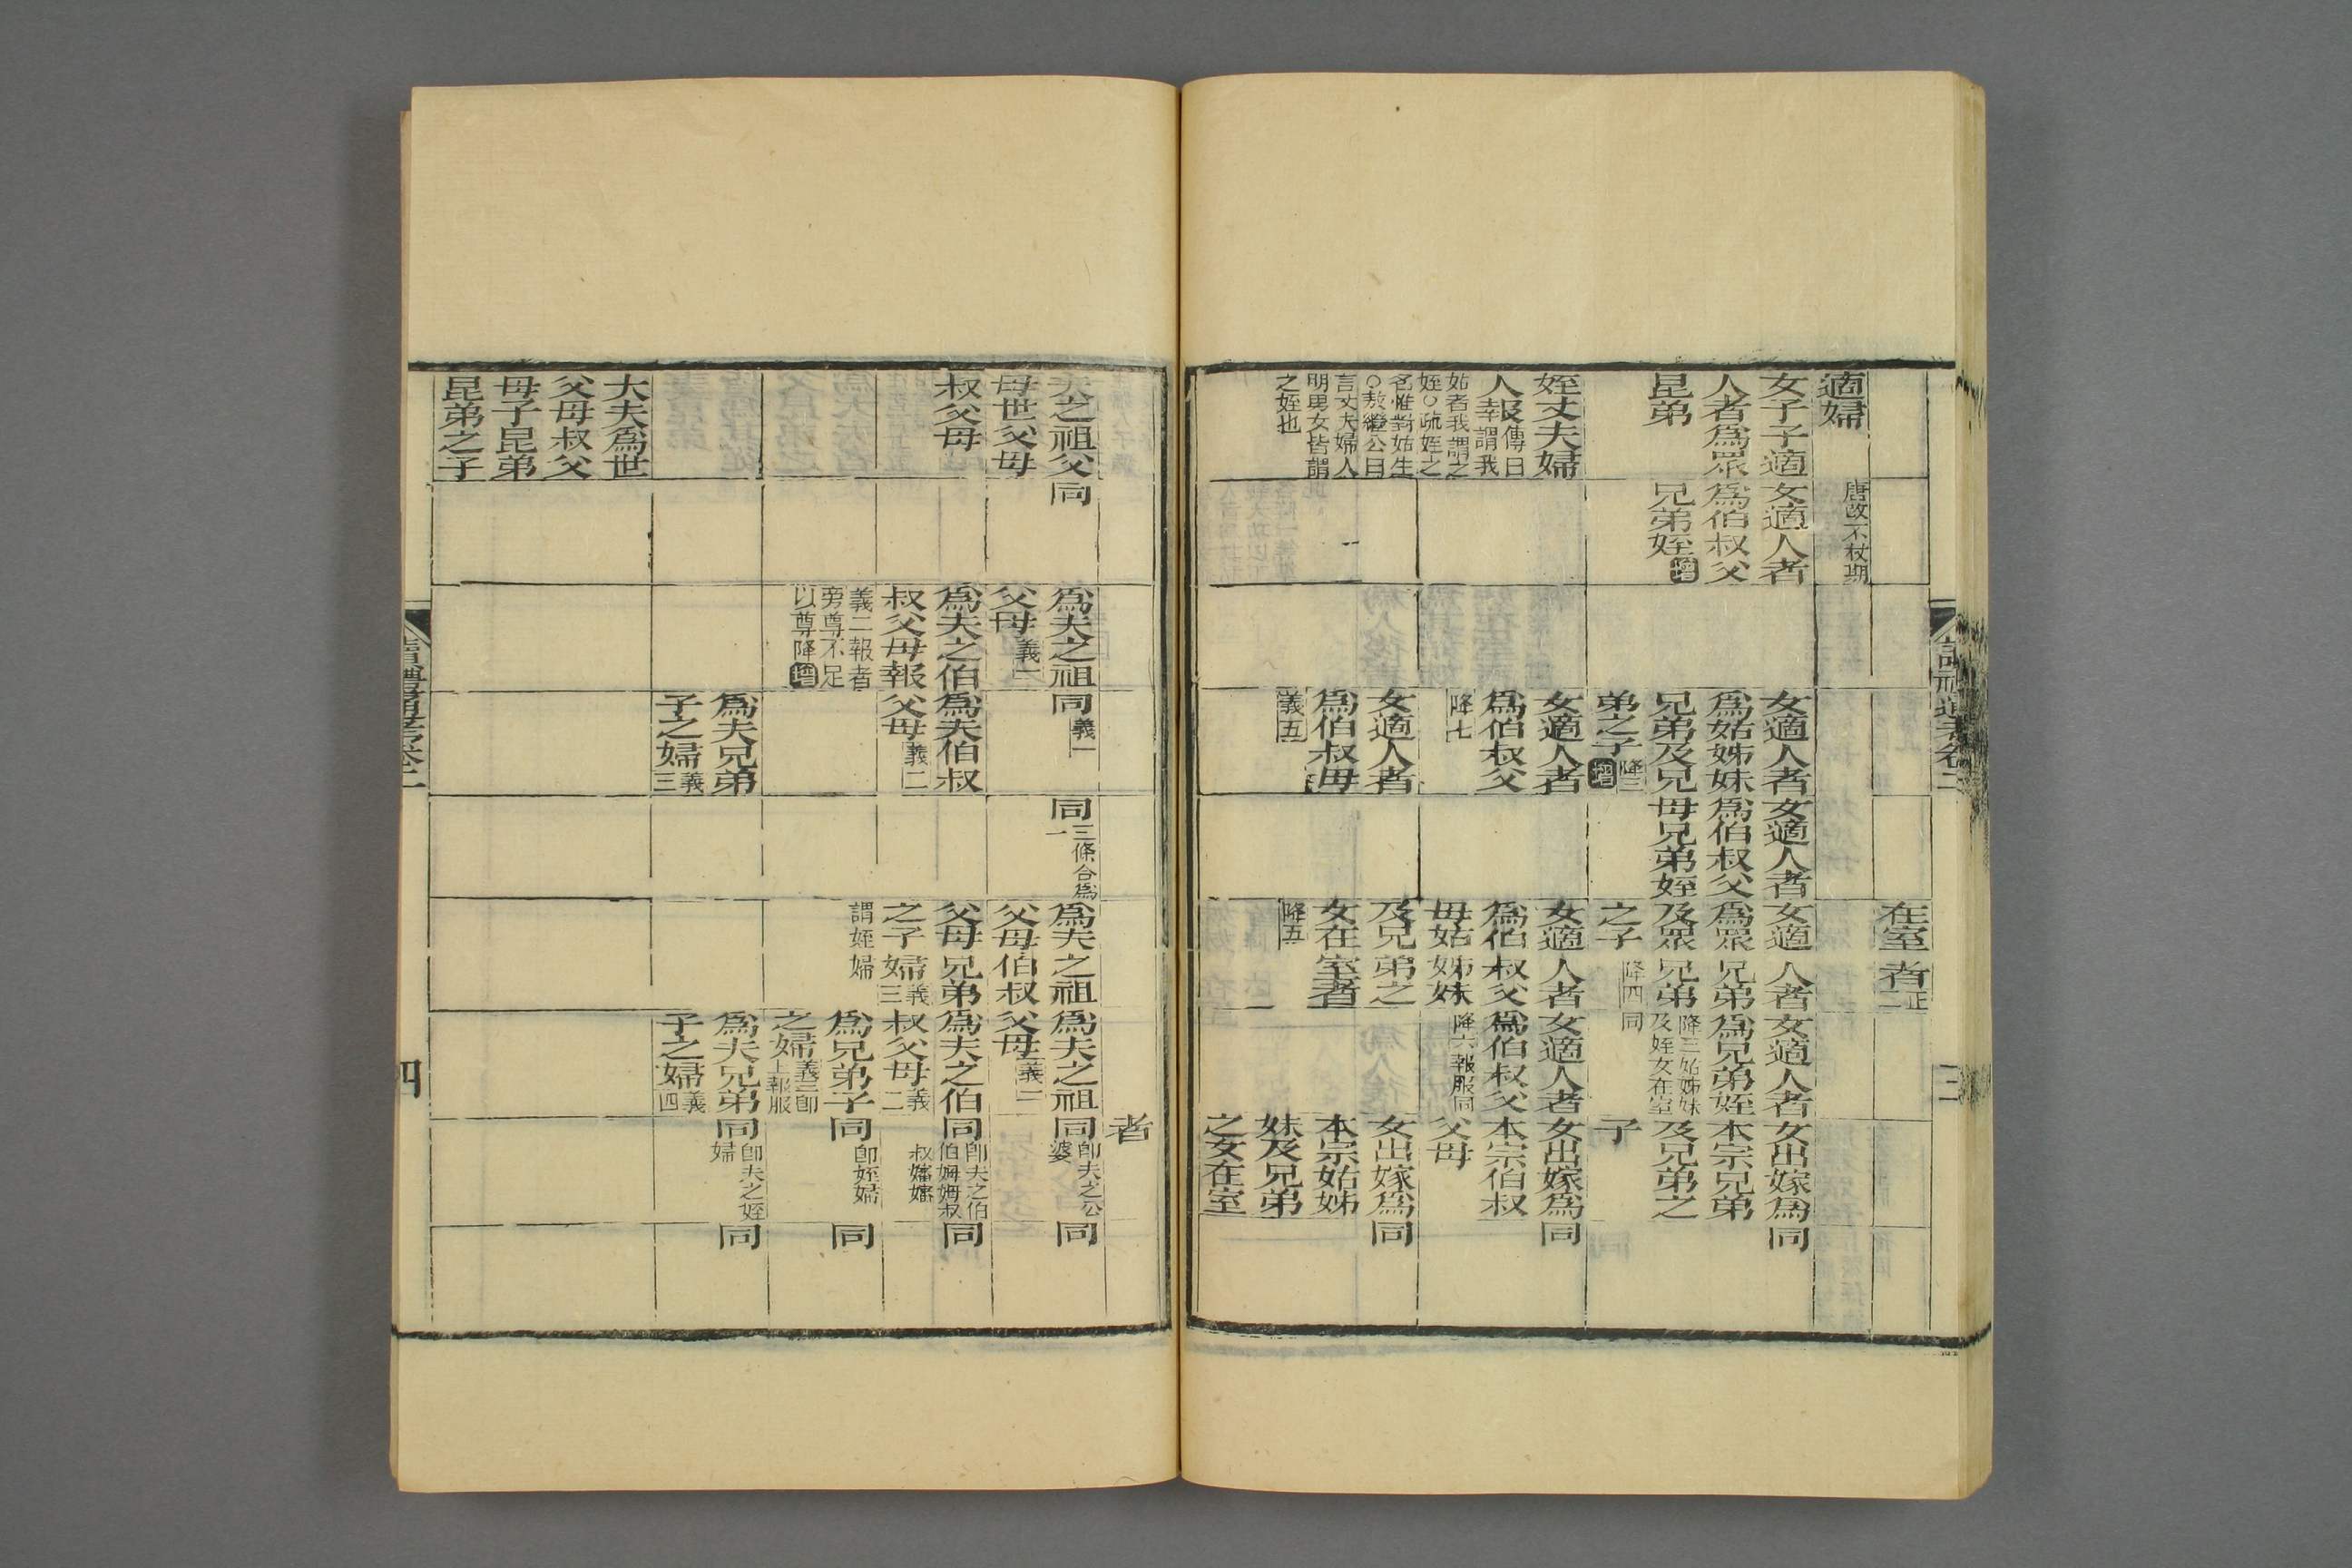 讀禮通考卷二
三
在室者正二
適婦
唐改不杖期
女子子適
人者爲眾
昆弟
女適人者
爲伯叔父
兄弟姪增
女適人者
爲姑姊妹
兄弟及兄
弟之子降三增
女適人者
爲伯叔父
母兄弟姪
女適人者
爲眾兄弟
及眾兄弟
之子降四
女適人者
爲兄弟姪
降三姑姊妹
及姪女在室
同
女出嫁爲
本宗兄弟
及兄弟之
子
同
姪丈夫婦
人報傳曰
姪者何也謂我
姑者我謂之
姪○疏姪之
名惟對姑生
○敖繼公曰
言丈夫婦人
明男女皆謂
之姪也
女適人者
爲伯叔父
降七
女適人者
爲伯叔父
母姑姊妹
及兄弟之
女在室者
降五
女適人者
爲伯叔父
降六報服同
女出嫁爲
本宗伯叔
父母
同
女適人者
爲伯叔母
義五
女出嫁爲
本宗姑姊
妹及兄弟
之女在室
同
者
夫之祖父
母世父母
叔父母
同
爲夫之祖
父母義一
同義一
同三條合爲
一
爲夫之祖
父母伯叔
父母兄弟
之子婦義三
謂姪婦
爲夫之祖
父母義一
同卽夫之公
婆
同
爲夫之伯
叔父母報
義二報者
旁尊不足
以尊降增
爲夫伯叔
父母義二
爲夫之伯
叔父母義二
同卽夫之伯
伯姆姆叔
叔嬸嬸
同
爲兄弟子
之婦義三卽
上報服
同卽姪婦
同
爲夫兄弟
子之婦義三
爲夫兄弟
子之婦義四
同卽夫之姪
婦
同
大夫爲世
父母叔父
母子昆弟
昆弟之子
讀禮通考卷二
四